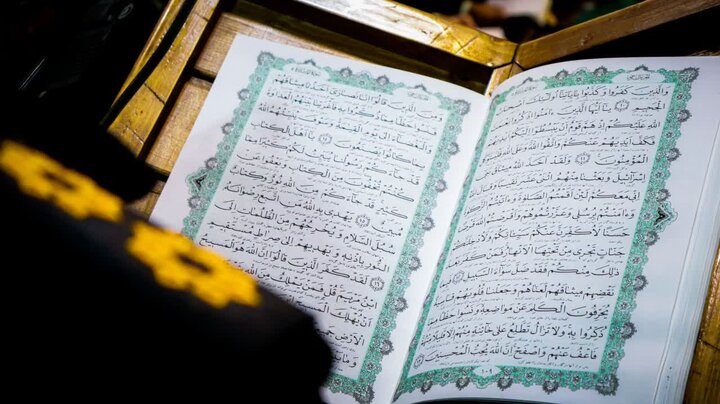 والذين كفروا وكذبوا بآياتنا أولئك أصحاب
الجحيم ١٠ يا أيها الذين آمنوا اذكروا نعمت
الله عليكم إذ هم قوم أن يبسطوا إليكم أيديهم
فكف أيديهم عنكم واتقوا الله وعلى الله فليتوكل
المؤمنون ١١ ولقد أخذ الله ميثاق بني
إسرائيل وبعثنا منهم اثني عشر نقيبا وقال الله
إني معكم لئن أقمتم الصلاة وآتيتم الزكاة
وآمنتم برسلي وعزرتموهم وأقرضتم الله قرضا
حسنا لأكفرن عنكم سيئاتكم ولأدخلنكم
جنات تجري من تحتها الأنهار فمن كفر بعد
ذلك منكم فقد ضل سواء السبيل ١٢ فبما
نقضهم ميثاقهم لعناهم وجعلنا قلوبهم قاسية
يحرفون الكلم عن مواضعه ونسوا حظا مما
ذكروا به ولا تزال تطلع على خائنة منهم إلا قليلا منهم
فاعف عنهم واصفح إن الله يحب المحسنين ١٣
١٠٩
ومن الذين قالوا إنا نصارى أخذنا ميثاقهم
فنسوا حظا مما ذكروا به فأغرينا بينهم
العداوة والبغضاء إلى يوم القيامة وسوف ينبئهم الله
بما كانوا يصنعون ١٤ يا أهل الكتاب
قد جاءكم رسولنا يبين لكم كثيرا مما
كنتم تخفون من الكتاب ويعفو عن
كثير قد جاءكم من الله نور وكتاب
مبين ١٥ يهدي به الله من اتبع رضوانه
سبل السلام ويخرجهم من الظلمات إلى
النور بإذنه ويهديهم إلى صراط مستقيم ١٦
لقد كفر الذين قالوا إن الله هو المسيح
ابن مريم قل فمن يملك
أن يهلك المسيح
الأرض
وما